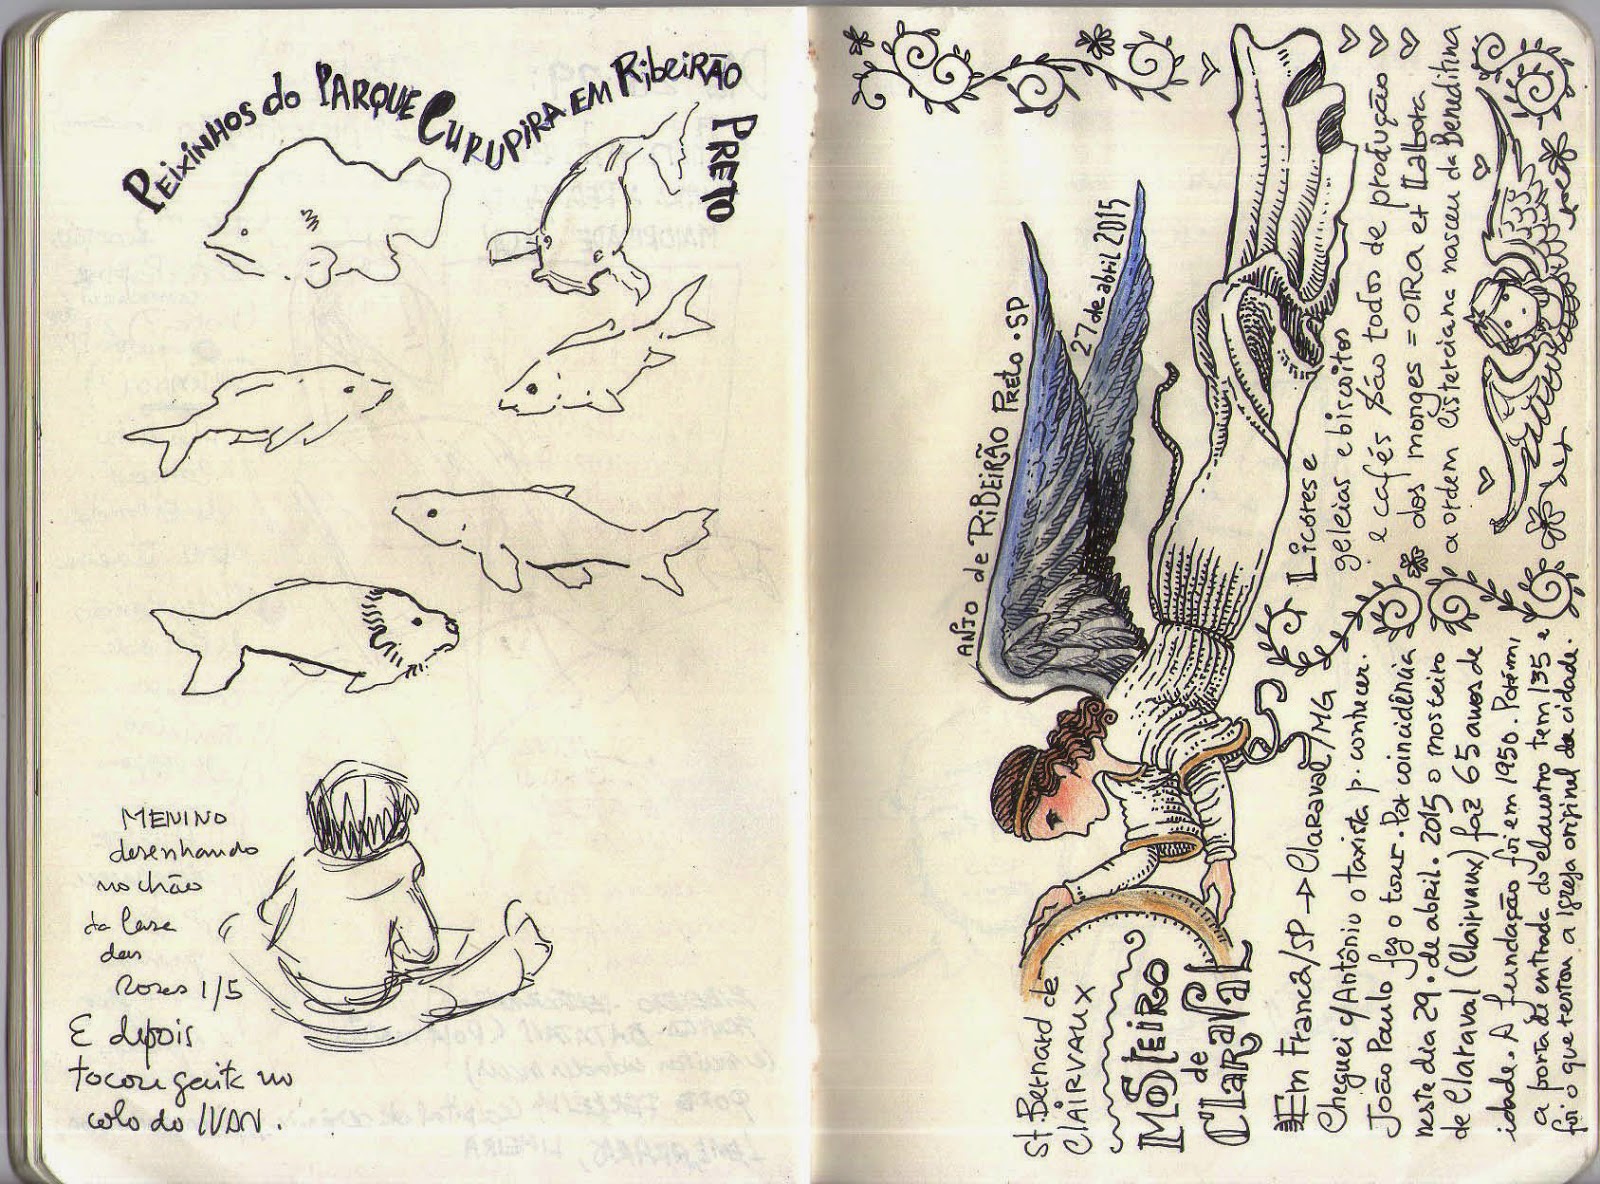 Peixinhos do Parque Curupira em Ribeirão Preto
MENINO
desenhando
no chão
da Casa
das
Rosas 1/5
E depois
tocou gaita no
colo do IVAN.
Anjo de Ribeirão Preto. SP
27 de abril 2015
St. Bernard de
Clairvaux
Mosteiro
de
Claraval
Em Franca/SP → Claraval/MG
Cheguei c/ Antônio o taxista p. conhecer.
João Paulo fez o tour. Por coincidência
neste dia 29. de abril. 2015 o mosteiro
de Claraval (Clairvaux) faz 65 anos de
idade. A fundação foi em 1950. Porém
a porta de entrada do claustro tem 135 e
foi o que restou a Igreja original da cidade.
Licores e
geleias e biscoitos
e cafés são todos de produção
dos monges = ORA et Labora
a ordem Cisterciana nasceu da Beneditina